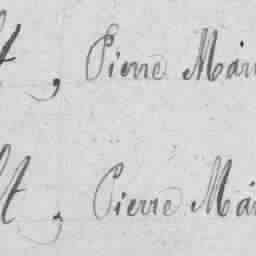 t, Pierre Mar
t, Pierre Mar